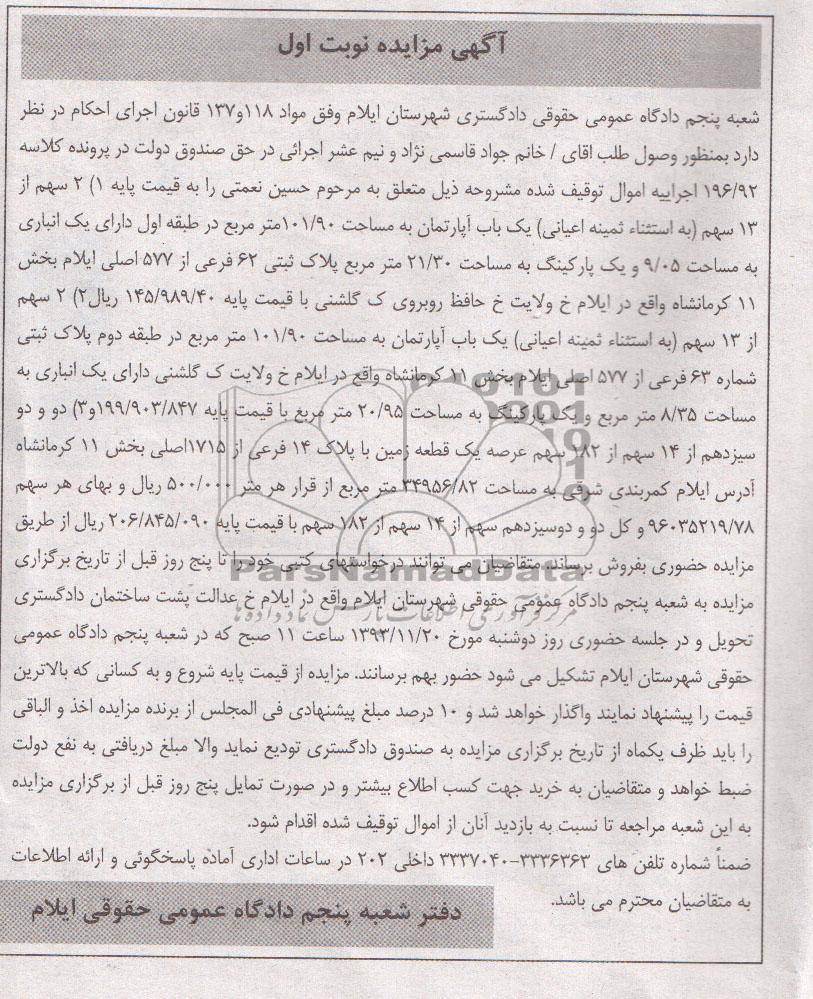 آگهی مزایده نوبت اول
شعبه پنجم دادگاه عمومی حقوقی دادگستری شهرستان ایلام وفق مواد ۱۱۸و۱۳۷ قانون اجرای احکام در نظر
دارد بمنظور وصول طلب اقای / خانم جواد قاسمی نژاد و نیم عشر اجرائی در حق صندوق دولت در پرونده کلاسه
۱۹۶/۹۲ اجراییه اموال توقیف شده مشروحه ذیل متعلق به مرحوم حسین نعمتی را به قیمت پایه ۱) ۲ سهم از
۱۳ سهم (به استثناء ثمینه اعیانی) یک باب آپارتمان به مساحت ۱۰۱/۹۰متر مربع در طبقه اول دارای یک انباری
به مساحت ۹/۰۵ و یک پارکینگ به مساحت ۲۱/۳۰ متر مربع پلاک ثبتی ۶۲ فرعی از ۵۷۷ اصلی ایلام بخش
۱۱ کرمانشاه واقع در ایلام خ ولایت خ حافظ روبروی ک گلشنی با قیمت پایه ۱۴۵/۹۸۹/۴۰ ریال۲) ۲ سهم
از ۱۳ سهم (به استثناء ثمینه اعیانی) یک باب آپارتمان به مساحت ۱۰۱/۹۰ متر مربع در طبقه دوم پلاک ثبتی
شماره ۶۳ فرعی از ۵۷۷ اصلی ایلام بخش ۱۱ کرمانشاه واقع در ایلام خ ولایت ک گلشنی دارای یک انباری به
مساحت ۸/۳۵ متر مربع و یک پارکینگ به مساحت ۲۰/۹۵ متر مربع با قیمت پایه ۱۹۹/۹۰۳/۸۴۷و۳) دو و دو
سیزدهم از ۱۴ سهم از ۱۸۲ سهم عرصه یک قطعه زمین با پلاک ۱۴ فرعی از ۱۷۱۵اصلی بخش ۱۱ کرمانشاه
آدرس ایلام کمربندی شرقی به مساحت ۳۴۹۵۶/۸۲ متر مربع از قرار هر متر ۵۰۰/۰۰۰ ریال و بهای هر سهم
۹۶۰۳۵۲۱۹/۷۸ و کل دو و دوسیزدهم سهم از ۱۴ سهم از ۱۸۲ سهم با قیمت پایه ۲۰۶/۸۴۵/۰۹۰ ریال از طریق
مزایده حضوری بفروش برساند. متقاضیان می توانند درخواستهای کتبی خود را تا پنج روز قبل از تاریخ برگزاری
ParsNamadData
مزایده به شعبه پنجم دادگاه عمومی حقوقی شهرستان ایلام واقع در ایلام خ عدالت پشت ساختمان دادگستری
تحویل و در جلسه حضوری روز دوشنبه مورخ ۱۳۹۳/۱۱/۲۰ ساعت ۱۱ صبح که در شعبه پنجم دادگاه عمومی
حقوقی شهرستان ایلام تشکیل می شود حضور بهم برسانند. مزایده از قیمت پایه شروع و به کسانی که بالاترین
قیمت را پیشنهاد نمایند واگذار خواهد شد و ۱۰ درصد مبلغ پیشنهادی فی المجلس از برنده مزایده اخذ و الباقی
را باید ظرف یکماه از تاریخ برگزاری مزایده به صندوق دادگستری تودیع نماید والا مبلغ دریافتی به نفع دولت
ضبط خواهد و متقاضیان به خرید جهت کسب اطلاع بیشتر و در صورت تمایل پنج روز قبل از برگزاری مزایده
به این شعبه مراجعه تا نسبت به بازدید آنان از اموال توقیف شده اقدام شود.
ضمناً شماره تلفن های ۳۳۳۶۳۶۳-۳۳۳۷۰۴۰ داخلی ۲۰۲ در ساعات اداری آماده پاسخگوئی و ارائه اطلاعات
به متقاضیان محترم می باشد.
دفتر شعبه پنجم دادگاه عمومی حقوقی ایلام